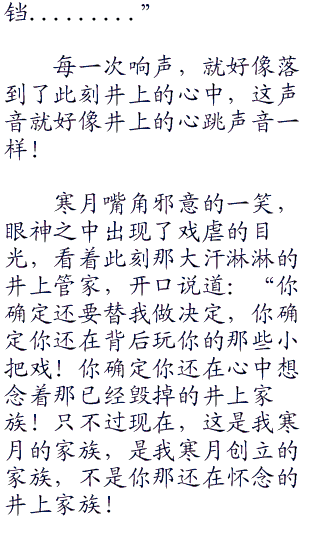 铛.........”
每一次响声，就好像落
到了此刻井上的心中，这声
音就好像井上的心跳声音一
样！
寒月嘴角邪意的一笑，
眼神之中出现了戏虐的目
光，看着此刻那大汗淋淋的
井上管家，开口说道：“你
确定还要替我做决定，你确
定你还在背后玩你的那些小
把戏！你确定你还在心中想
念着那已经毁掉的井上家
族！只不过现在，这是我寒
月的家族，是我寒月创立的
家族，不是你那还在怀念的
井上家族！